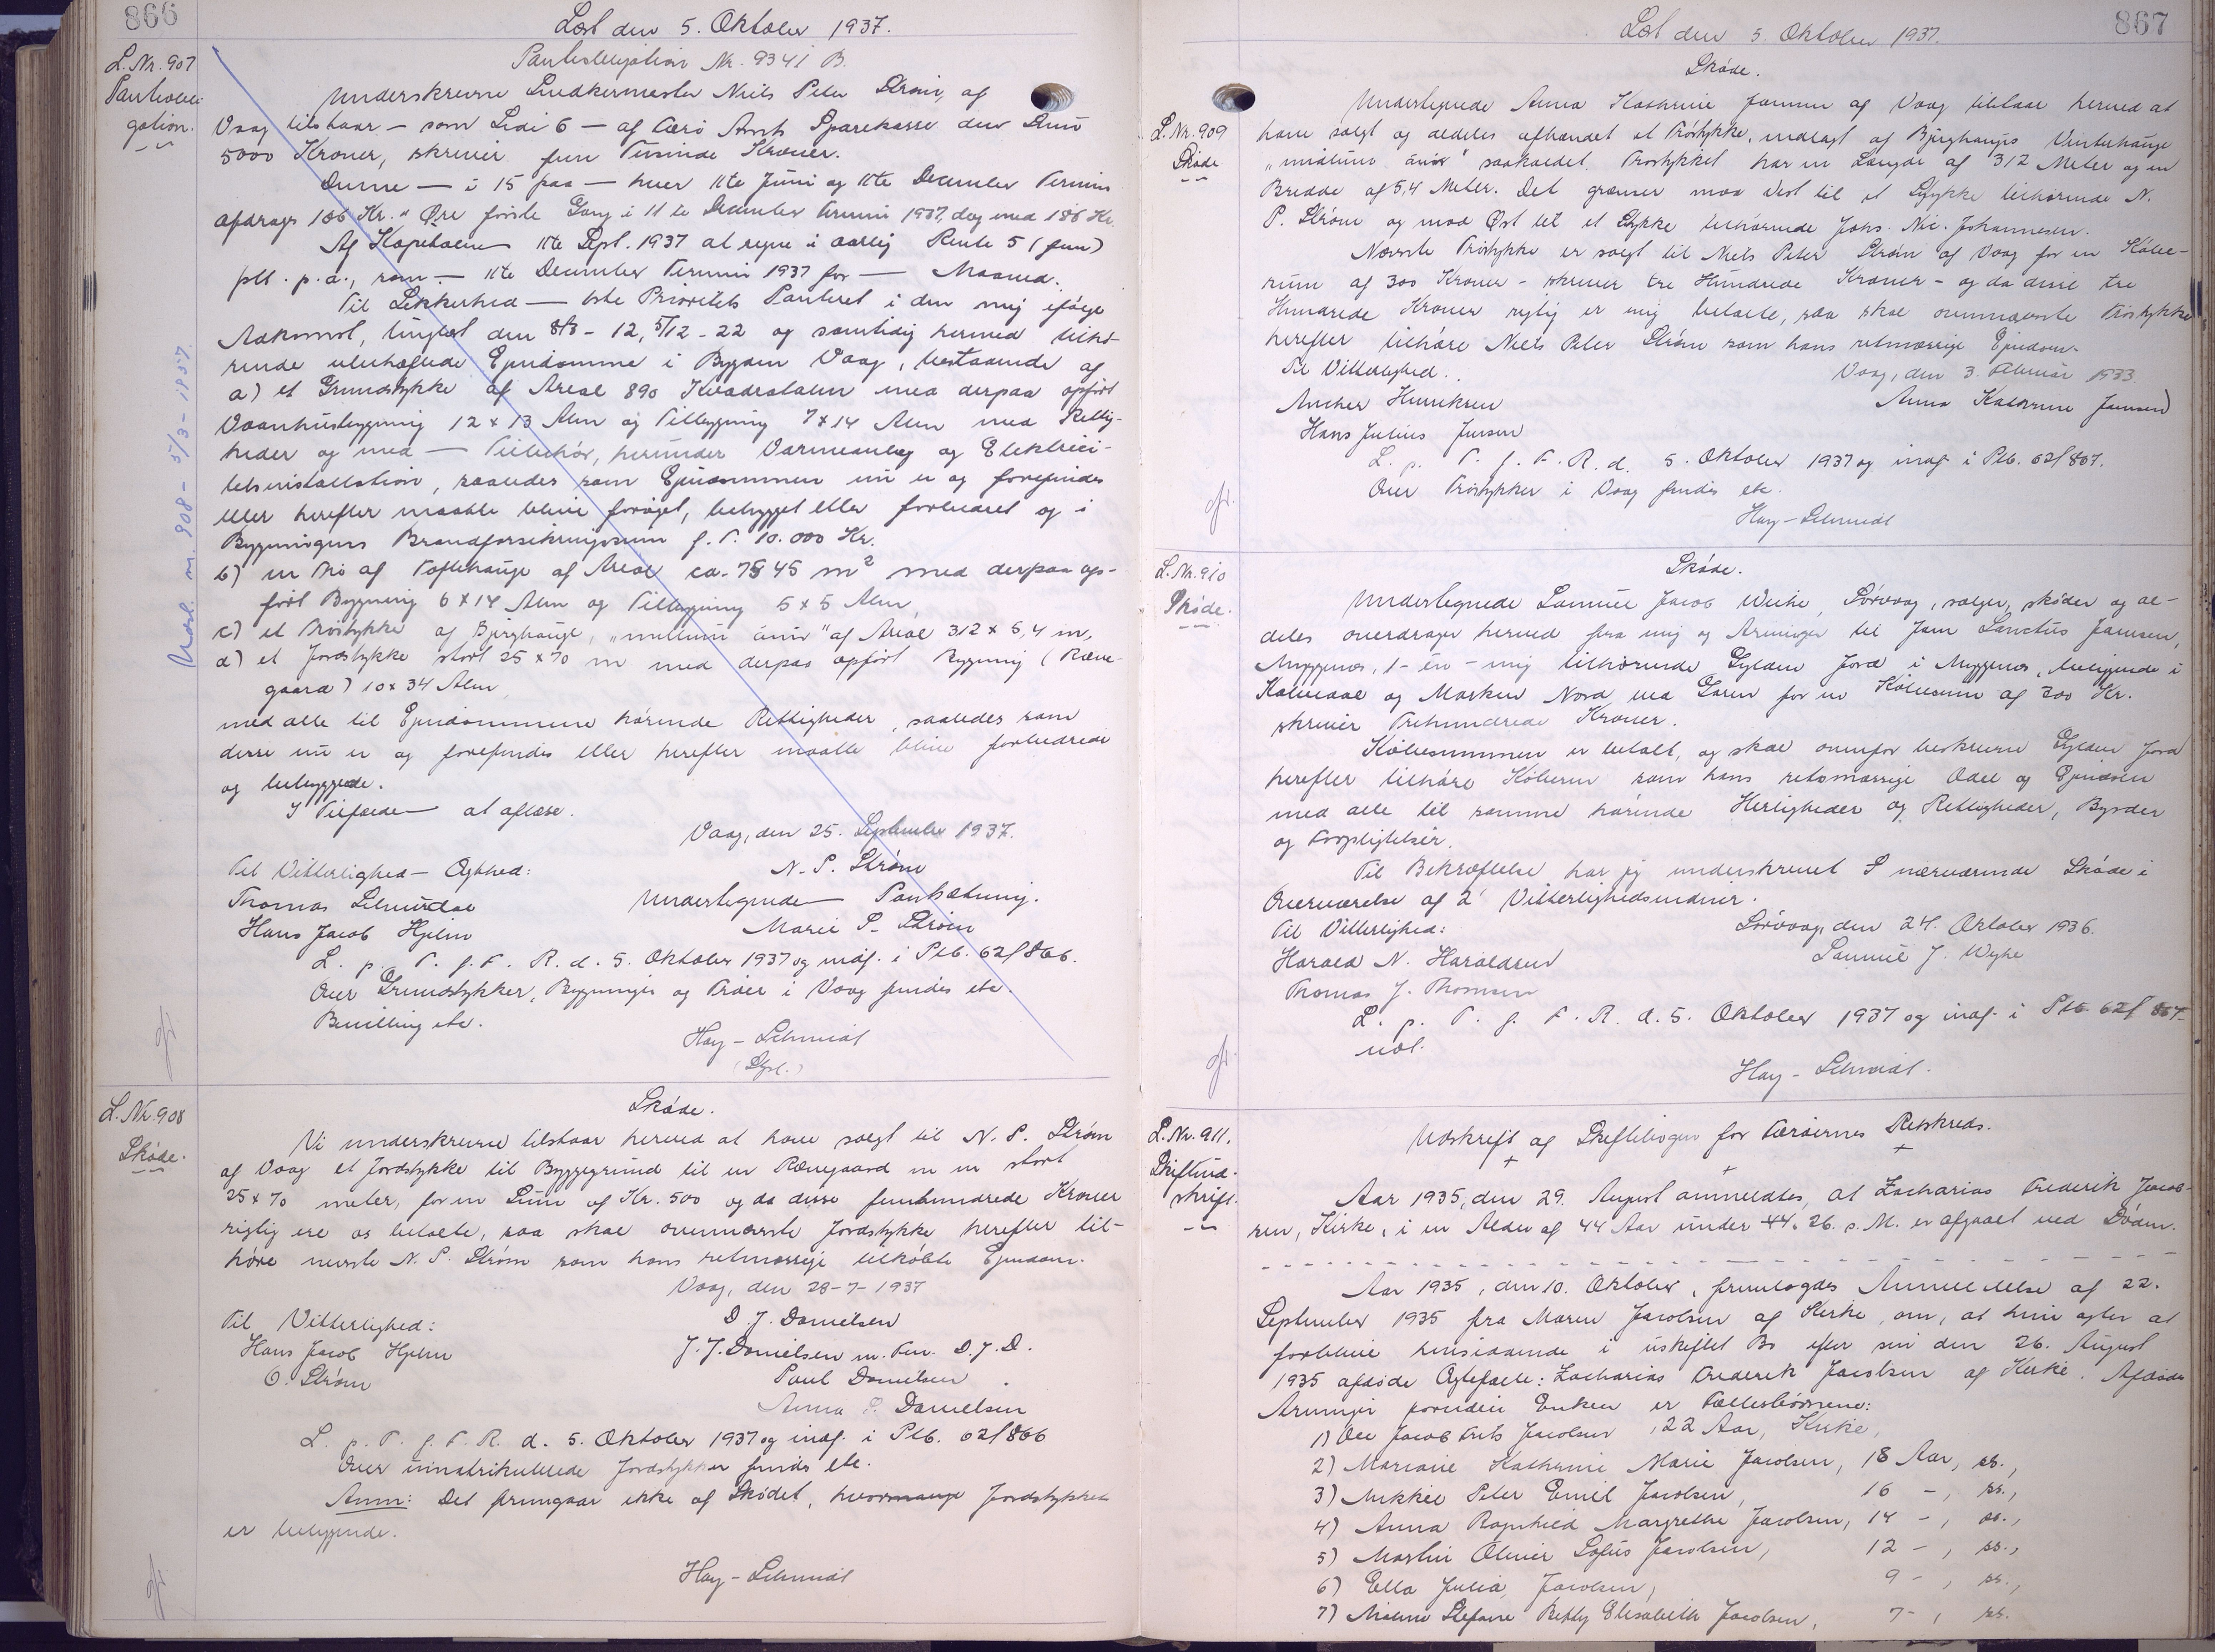 866
Læst den 5. Oktober 1937.
L. Nr. 907
Pantobli-
gation.
Pantobligation Nr. 9341 B.
Underskrevne Snedkermester Niels Peter Strøm, af
Vaag tilstaar — som Side 6 — af Færø Amts Sparekasse den Sum
5000 Kroner, skriver fem Tusinde Kroner.
Denne — i 15 paa — hver 11te Juni og 11te December Termin
afdrages 166 Kr. " Øre første Gang i 11te December Termin 1937, dog med 186 Kr.
Af Kapitalen 11te Sept. 1937 at regne i aarlig Rente 5 (fem)
pCt. p.a., som — 11te December Termin 1937 for — Maaned.
Til Sikkerhed — 1ste Prioritets Panteret i den mig ifølge
Adkomst, tinglæst den 8/3 - 12, 5/12 - 22 og samtidig hermed tilhø-
rende ubehæftede Ejendomme i Bygden Vaag, bestaaende af
a) et Grundstykke af Areal 890 Kvadratalen med derpaa opført
Vaanhusbygning 12 x 13 Alen og Tilbygning 7 x 14 Alen med Rettig-
heder og med — Tilbehør, herunder Varmeanlæg og Elektrici-
tetsinstallation, saaledes som Ejendommen nu er og forefindes
eller herefter maatte blive forøget, bebygget eller forbedret og i
Bygningens Brandforsikringssum f. T. 10.000 Kr.
b) en Trø af Toftehauge af Areal ca. 7845 m² med derpaa op-
ført Bygning 6 x 14 Alen og Tilbygning 5 x 5 Alen,
c) et Trøstykke af Bjørghauge, "millum ánir" af Areal 312 x 5,4 m,
d) et Jordstykke stort 25 x 70 m med derpaa opført Bygning (Ræve-
gaard) 10 x 34 Alen
med alle til Ejendommene hørende Rettigheder, saaledes som
disse nu er og forefindes eller herefter maatte blive forbedrede
og bebyggede.
I Tilfælde — at aflæse.
Vaag, den 25. September 1937.
Til Vitterlighed — Ægthed:
N. P. Strøm
Thomas
Underlegnede — Pantsætning.
Hans Jacob Hjelm
Marie S. Strøm
L. p. T. f. F. R. d. 5. Oktober 1937 og indf. i Ptb. 62f 866.
Over Grundstykker, Bygninger og Trøer i Vaag findes etc.
Bevilling etc.
Hay-Schmidt
(Dpt.)
Kvæst. nr. 908 - 5/3 - 1957.
L. Nr. 908
Skøde.
Skøde.
Vi underskrevne tilstaar herved at have solgt til N. P. Strøm
af Vaag et Jordstykke til Byggegrund til en Rævegaard m m stort
25 x 70 meter, for en Sum af Kr. 500 og da disse femhundrede Kroner
rigtig ere os betalte, saa skal ovennævnte Jordstykke herefter til-
høre nævnte N. P. Strøm som hans retmæssige tilkøbte Ejendom.
Vaag, den 28-7-1937
Til Vitterlighed:
D. J. Danielsen
Hans Jacob Hjelm
J. J. Danielsen m. Fu. D. J. D.
O. Strøm
Paul Danielsen
Anna S. Danielsen
L. p. T. f. F. R. d. 5. Oktober 1937 og indf. i Ptb. 62f 866
Over umatrikulerede Jordstykker findes etc.
Anm: Det fremgaar ikke af Skødet, hvormange Jordstykket
er beliggende.
Hay-Schmidt
867
Læst den 5. Oktober 1937.
L. Nr. 909
Skøde
Skøde.
Undertegnede Anna Kathrine Jensen af Vaag tilstaar herved at
have solgt og aldeles afhændet et Trøstykke, indlagt af Bjørghauges Vinterhauge
"millum ánir" saakaldet. Trøstykket har en Længde af 312 Meter og en
Bredde af 5,4 Meter. Det grænser mod Vest til et Stykke tilhørende N.
P. Strøm og mod Øst til et Stykke tilhørende Johs. Nic. Johannesen.
Nævnte Trøstykke er solgt til Niels Peter Strøm af Vaag for en Købe-
sum af 300 Kroner - skriver tre Hundrede Kroner - og da disse tre
Hundrede Kroner rigtig er mig betalte, saa skal ovennævnte Trøstykke
herefter tilhøre Niels Peter Strøm som hans retmæssige Ejendom.
Til Vitterlighed.
Vaag, den 3. Februar 1933.
Ancher Henriksen
Anna Kathrine Jensen
Hans Julius Jensen
L. p. T. f. F. R. d. 5. Oktober 1937 og indf. i Ptb. 62f 867.
Over Trøstykker i Vaag findes etc.
Hay-Schmidt
L. Nr. 910
Skøde.
Skøde.
Undertegnede Samuel Jacob Weihe, Sørvaag, sælger, skøder og al-
deles overdrager herved fra mig og Arvinger til Jens Sanctus Jensen,
Myggenæs, 1 - én - mig tilhørende Gylden Jord i Myggenæs, beliggende i
Kalvedal og Marken Nord ved Garen for en Købesum af 300 Kr.
skriver Trehundrede Kroner.
Købesummen er betalt, og skal ovenfor beskrevne Gylden Jord
herefter tilhøre Køberen som hans retsmæssige Odel og Ejendom
med alle til samme hørende Herligheder og Rettigheder, Byrder
og Forpligtelser.
Til Bekræftelse har jeg underskrevet nærværende Skøde i
Overværelse af 2 Vitterlighedsvidner.
Til Vitterlighed:
Sørvaag, den 24. Oktober 1936.
Harald N. Haraldsen
Samuel J. Weihe
Thomas J. Thomsen
L. p. T. f. F. R. d. 5. Oktober 1937 og indf. i Ptb 62f 867
udl.
Hay-Schmidt.
L. Nr. 911.
Skifteud-
skrift.
Udskrift af Skiftebogen for Færøernes Retskreds.
Aar 1935, den 29. August anmeldtes, at Zacharias Frederik Jacob-
sen, Kirke, i en Alder af 44 Aar under 26. s. M. er afgaaet ved Døden.
Aar 1935, den 10. Oktober, fremlagdes Anmeldelse af 22.
September 1935 fra Maren Jacobsen af Kirke, om, at hun agter at
forblive hensiddende i uskiftet Bo efter sin den 26. August
1935 afdøde Ægtefælle: Zacharias Frederik Jacobsen af Kirke. Afdødes
Arvinger foruden Enken er Fællesbørnene:
1) Ole Jacob Frits Jacobsen, 22 Aar, Kirke,
2) Mariane Kathrine Marie Jacobsen, 18 Aar, ss.,
3) Mikkel Peter Emil Jacobsen, 16 -, ss.,
4) Anna Ragnhild Margrethe Jacobsen, 14 -, ss.,
5) Martin Oliver Lofus Jacobsen, 12 -, ss.,
6) Ella Julia Jacobsen, 9 -, ss.,
7) Stefanie Betty Elisabeth Jacobsen, 7 -, ss.